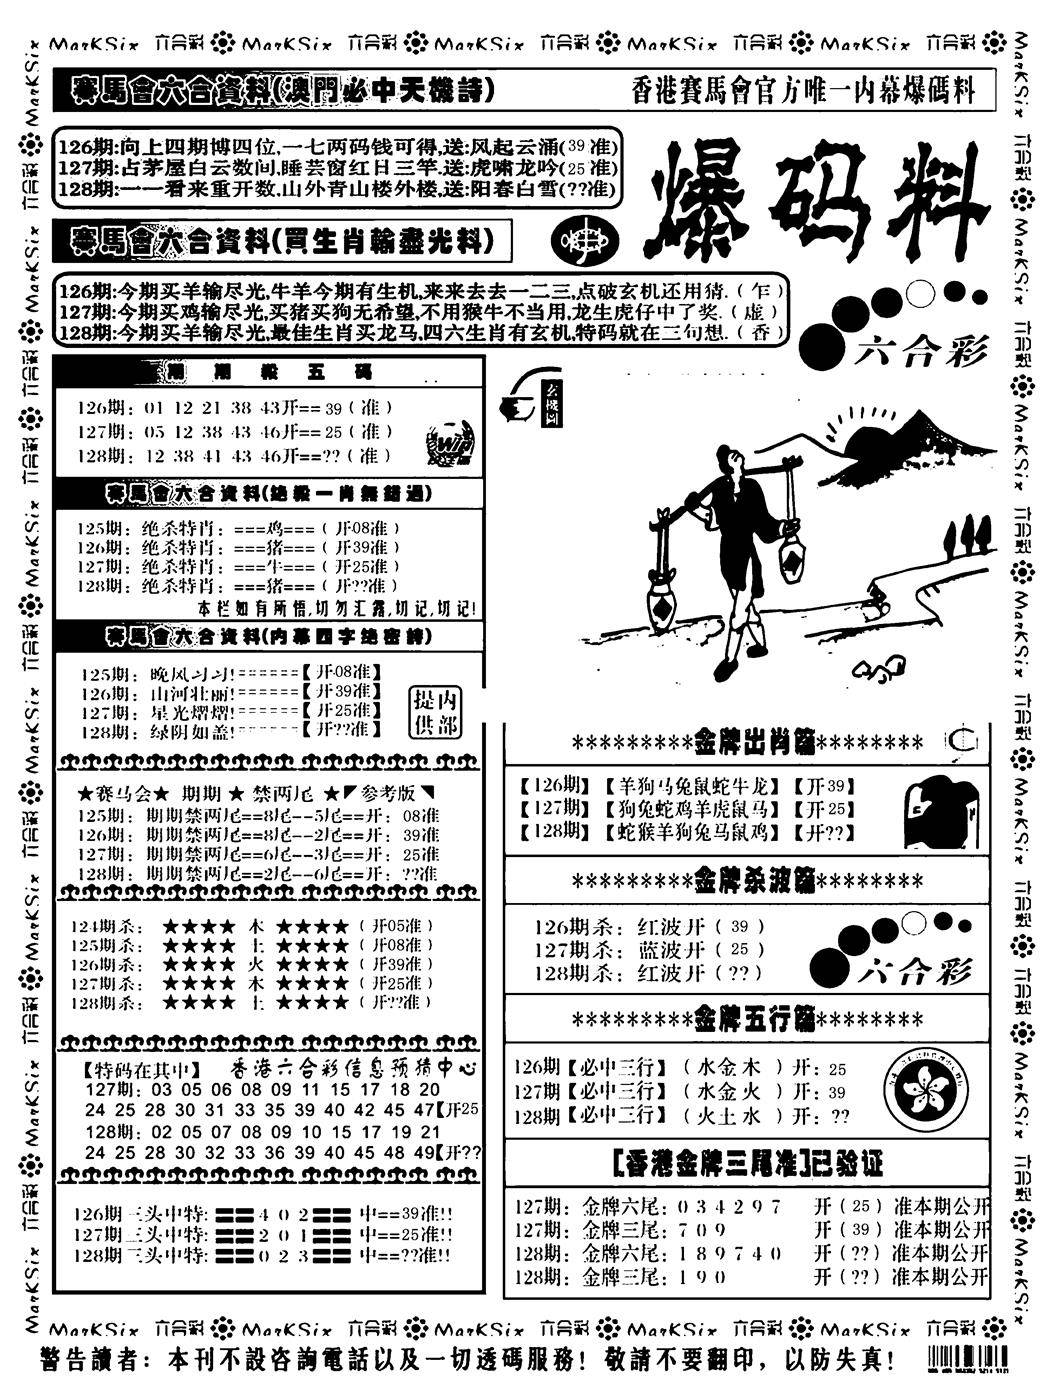 MarKSix 六合彩 MarKSix 六合彩 MarKSix 六合彩 MarKSix 六合彩 MarKSix 六合彩
賽馬會六合資料(澳門必中天機詩)
香港賽馬會官方唯一内幕爆碼料
126期:向上四期博四位,一七两码钱可得,送:风起云涌(39准)
127期:占茅屋白云数间,睡芸窗红日三竿,送:虎啸龙吟(25准)
128期:一一看来重开数,山外青山楼外楼,送:阳春白雪(??准)
爆码料
賽馬會六合資料(買生肖輸盡光料)
126期:今期买羊输尽光,牛羊今期有生机,来来去去一二三,点破玄机还用猜.(乍)
127期:今期买鸡输尽光,买猪买狗无希望,不用猴牛不当用,龙生虎仔中了奖.(虚)
128期:今期买羊输尽光,最佳生肖买龙马,四六生肖有玄机,特码就在三句想.(香)
六合彩
期期殺五碼
126期: 01 12 21 38 43开==39(准)
127期: 05 12 38 43 46开==25(准)
128期: 12 38 41 43 46开==??(准)
玄機圖
賽馬會六合資料(绝殺一肖無錯過)
125期: 绝杀特肖: ===鸡===(开08准)
126期: 绝杀特肖: ===猪===(开39准)
127期: 绝杀特肖: ===牛===(开25准)
128期: 绝杀特肖: ===猪===(开??准)
本栏如有所悟,切勿汇露,切记,切记!
賽馬會六合資料(内幕四字绝密詩)
125期: 晚风习习!======【开08准】
126期: 山河壮丽!======【开39准】
127期: 星光熠熠!======【开25准】
128期: 绿阴如盖!======【开??准】
内部提供
★赛马会★ 期期 ★ 禁两尾 ★参考版
125期: 期期禁两尾==8尾--5尾==开: 08准
126期: 期期禁两尾==8尾--2尾==开: 39准
127期: 期期禁两尾==6尾--3尾==开: 25准
128期: 期期禁两尾==2尾--6尾==开: ??准
124期杀: ★★★★ 木 ★★★★(开05准)
125期杀: ★★★★ 土 ★★★★(开08准)
126期杀: ★★★★ 火 ★★★★(开39准)
127期杀: ★★★★ 木 ★★★★(开25准)
128期杀: ★★★★ 土 ★★★★(开??准)
【特码在其中】 香港六合彩信息预猜中心
127期: 03 05 06 08 09 11 15 17 18 20
24 25 28 30 31 33 35 39 40 42 45 47【开25
128期: 02 05 07 08 09 10 15 17 19 21
24 25 28 30 32 33 36 39 40 45 48 49【开??
126期三头中特: 4 0 2 中==39准!!
127期三头中特: 2 0 1 中==25准!!
128期三头中特: 0 2 3 中==??准!!
*********金牌出肖篇********
【126期】【羊狗马兔鼠蛇牛龙】【开39】
【127期】【狗兔蛇鸡羊虎鼠马】【开25】
【128期】【蛇猴羊狗兔马鼠鸡】【开??】
*********金牌杀波篇********
126期杀: 红波开(39)
127期杀: 蓝波开(25)
128期杀: 红波开(??)
六合彩
*********金牌五行篇********
126期【必中三行】(水金木)开: 25
127期【必中三行】(水金火)开: 39
128期【必中三行】(火土水)开: ??
[香港金牌三尾准]已验证
127期: 金牌六尾: 0 3 4 2 9 7 开(25)准本期公开
127期: 金牌三尾: 7 0 9 开(39)准本期公开
128期: 金牌六尾: 1 8 9 7 4 0 开(??)准本期公开
128期: 金牌三尾: 1 9 0 开(??)准本期公开
MarKSix 六合彩 MarKSix 六合彩 MarKSix 六合彩 MarKSix 六合彩 MarKSix 六合彩
警告讀者: 本刊不設咨詢電話以及一切透碼服務! 敬請不要翻印, 以防失真!